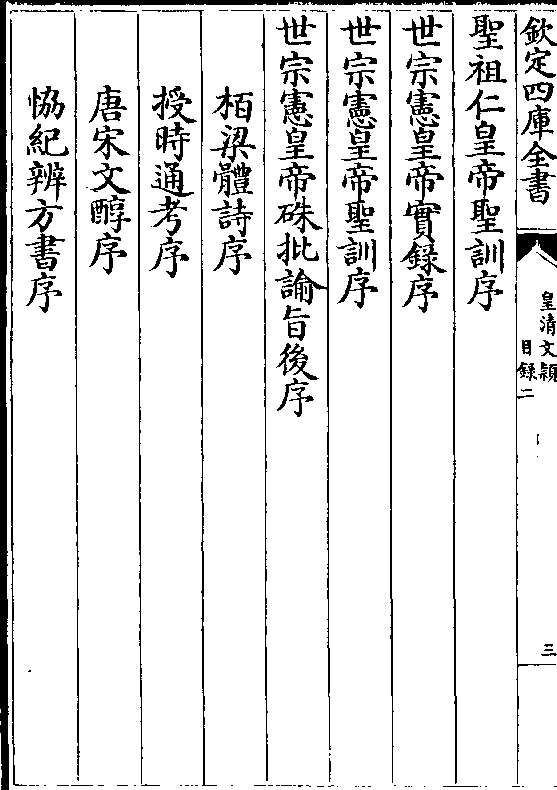 欽定四庫全書
皇清文穎
目錄二
三
聖祖仁皇帝聖訓序
世宗憲皇帝實錄序
世宗憲皇帝聖訓序
世宗憲皇帝硃批諭旨後序
栢梁體詩序
授時通考序
唐宋文醇序
恊紀辨方書序